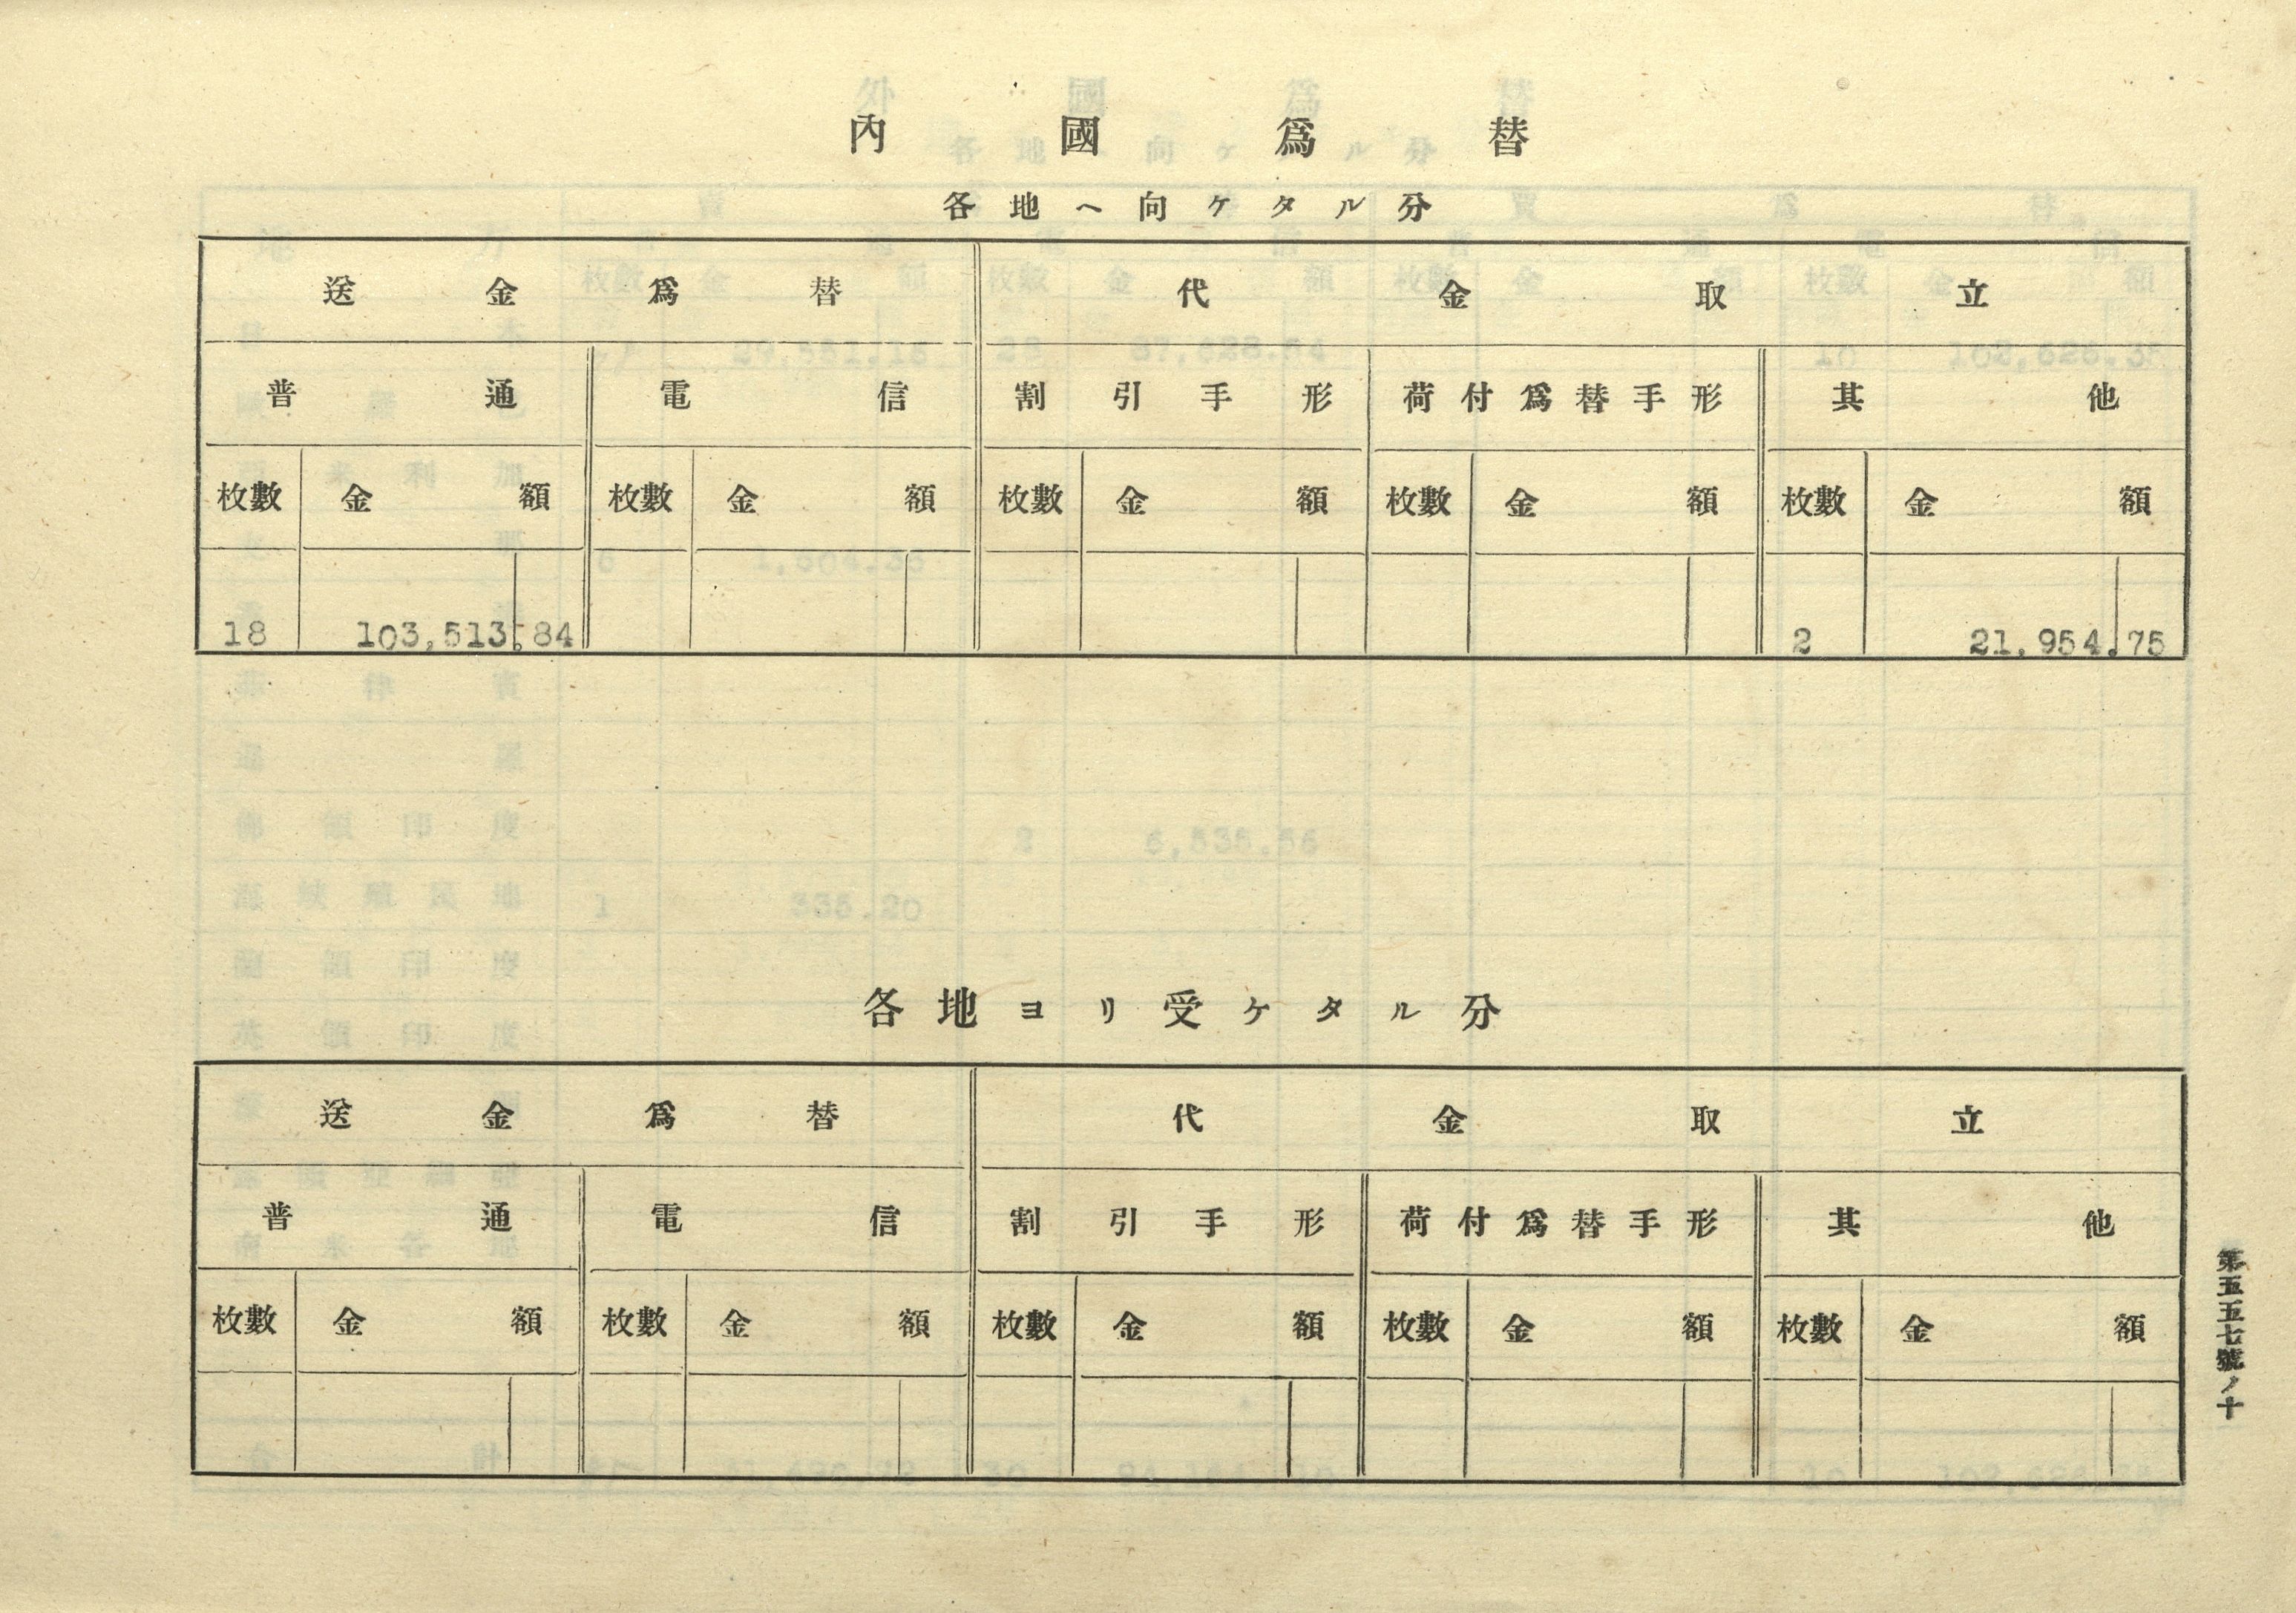 內國爲替
各地ヘ向ケタル分
送金爲替 代金取立
普通 電信 割引手形 荷付爲替手形 其他
枚數 金額 枚數 金額 枚數 金額 枚數 金額 枚數 金額
18 103,513.84 2 21,954.75
各地ヨリ受ケタル分
送金爲替 代金取立
普通 電信 割引手形 荷付爲替手形 其他
枚數 金額 枚數 金額 枚數 金額 枚數 金額 枚數 金額
第五五七號ノ十